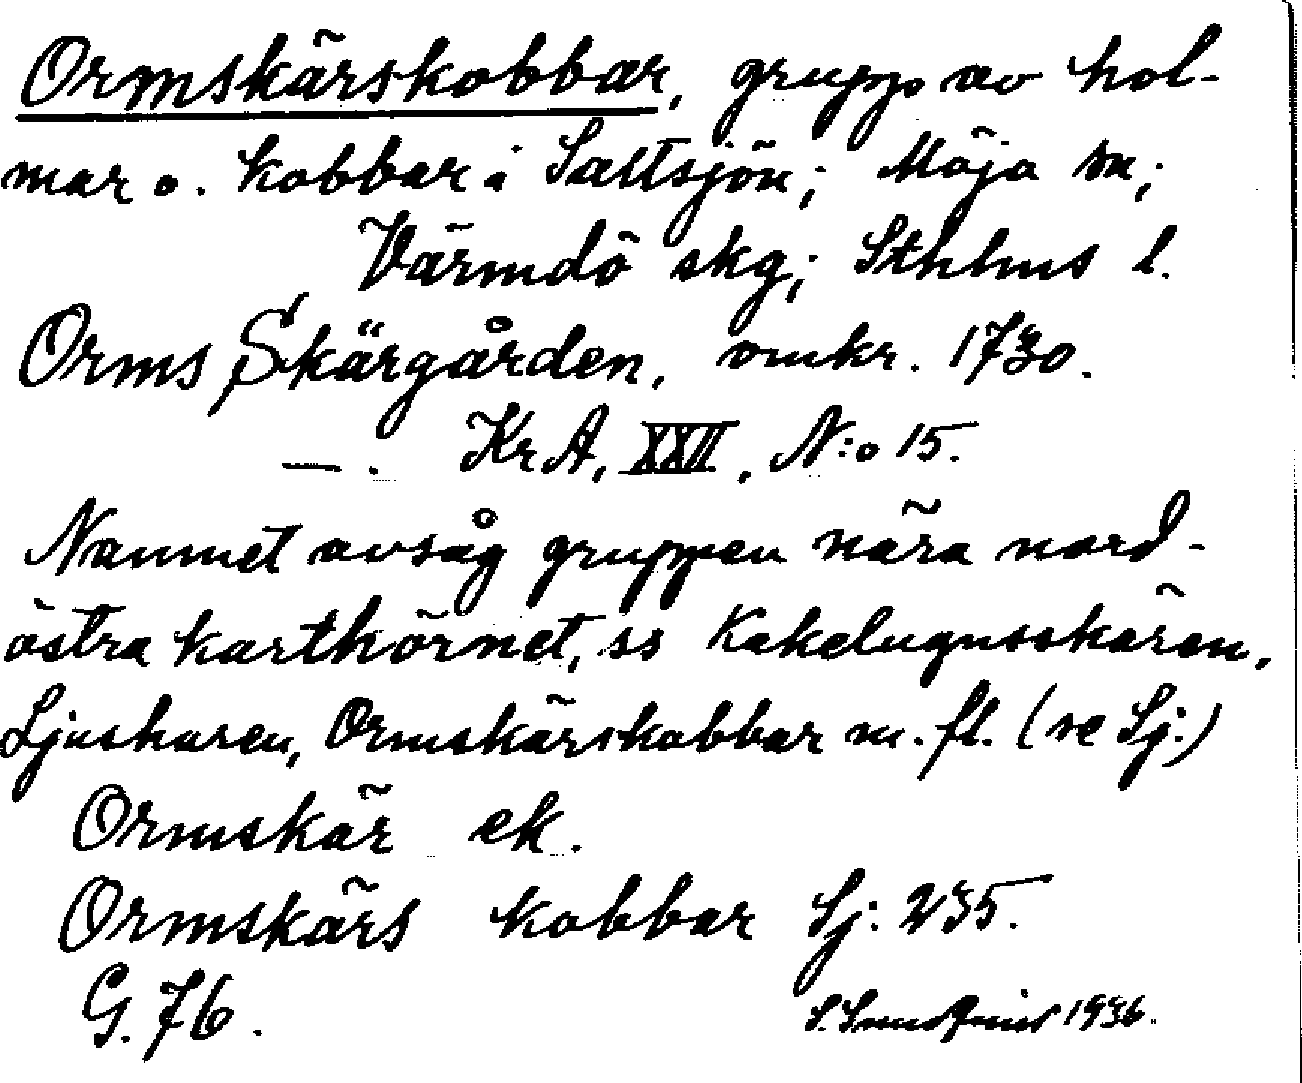 Ormskärskobbar, grupp av hol-
mar o. kobbar i Saltsjön; Möja sn;
Värmdö skg; Sthlms l.
Orms Skärgården, omkr. 1730.
—. KrA, XXII, N:o 15.
Namnet avsåg gruppen nära nord-
östra karthörnet, ss Kakelugnsskären,
Ljusharen, Ormskärskobbar m. fl. (se Sj:)
Ormskär ek.
Ormskärs kobbar Sj: 235.
G. 76.
S. 1936.